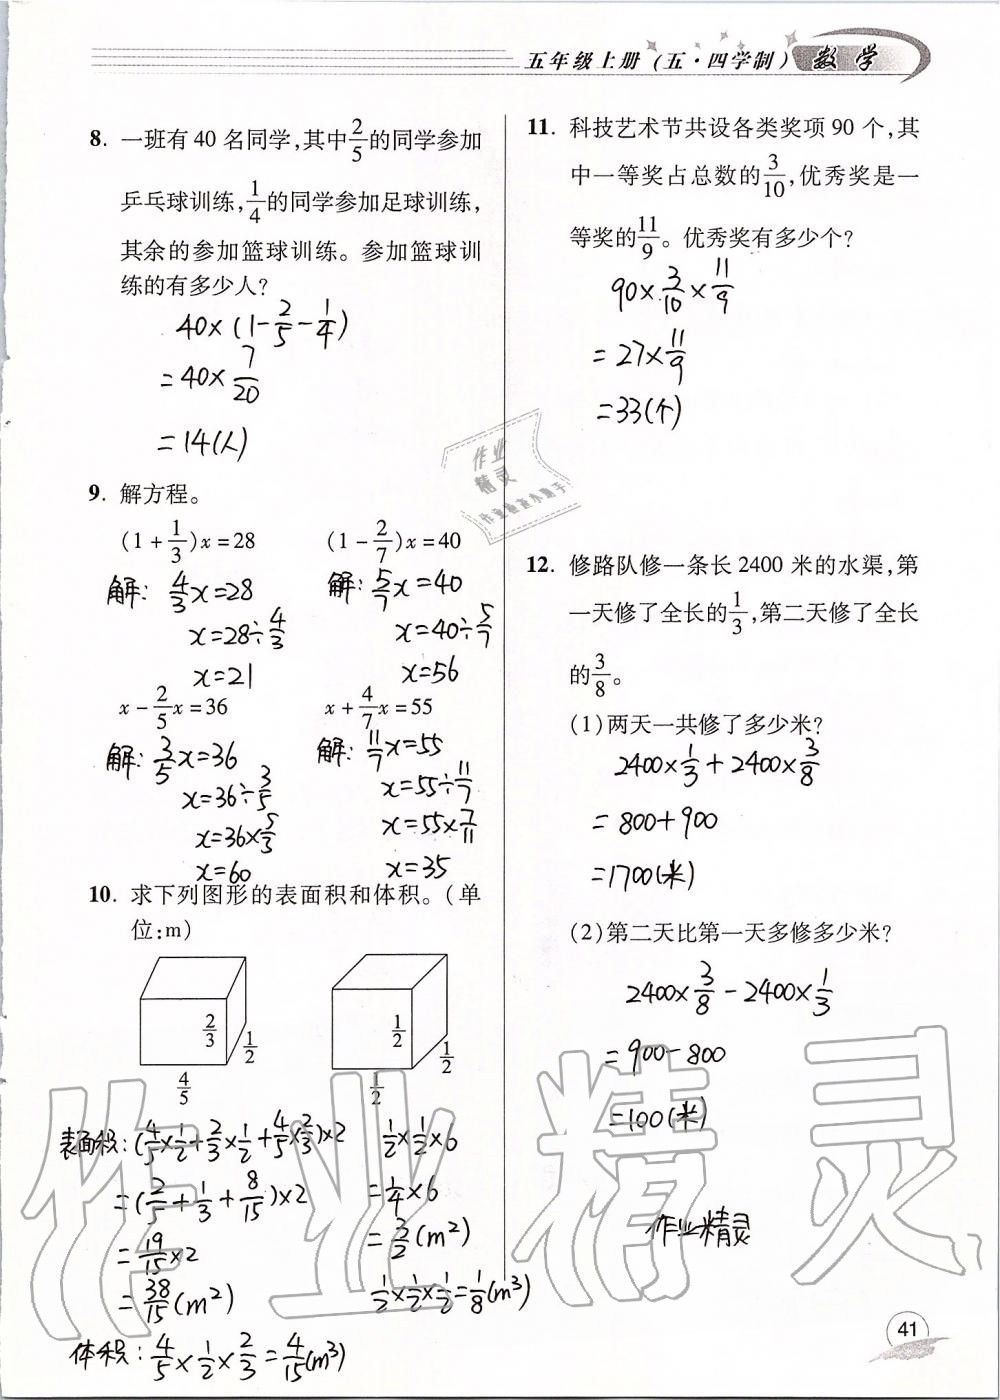 五年级上册(五·四学制) 数学
8. 一班有 40 名同学,其中2/5的同学参加
乒乓球训练,1/4的同学参加足球训练,
其余的参加篮球训练。参加篮球训
练的有多少人?
40×(1-2/5-1/4)
=40×7/20
=14(人)
9. 解方程。
(1+1/3)x=28 (1-2/7)x=40
解: 4/3x=28 解: 5/7x=40
x=28÷4/3 x=40÷5/7
x=21 x=56
x-2/5x=36 x+4/7x=55
解: 3/5x=36 解: 11/7x=55
x=36÷3/5 x=55÷11/7
x=36×5/3 x=55×7/11
x=60 x=35
10. 求下列图形的表面积和体积。(单
位:m)
2/3 1/2 4/5
1/2 1/2 1/2
表面积:(4/5×1/2+2/3×1/2+4/5×2/3)×2
=(2/5+1/3+8/15)×2
=19/15×2
=38/15(m²)
体积: 4/5×1/2×2/3=4/15(m³)
1/2×1/2×6
=1/4×6
=3/2(m²)
1/2×1/2×1/2=1/8(m³)
11. 科技艺术节共设各类奖项 90 个,其
中一等奖占总数的3/10,优秀奖是一
等奖的11/9。优秀奖有多少个?
90×3/10×11/9
=27×11/9
=33(个)
12. 修路队修一条长 2400 米的水渠,第
一天修了全长的1/3,第二天修了全长
的3/8。
(1)两天一共修了多少米?
2400×1/3+2400×3/8
=800+900
=1700(米)
(2)第二天比第一天多修多少米?
2400×3/8-2400×1/3
=900-800
=100(米)
作业精灵
41
作业
精灵
作业精灵